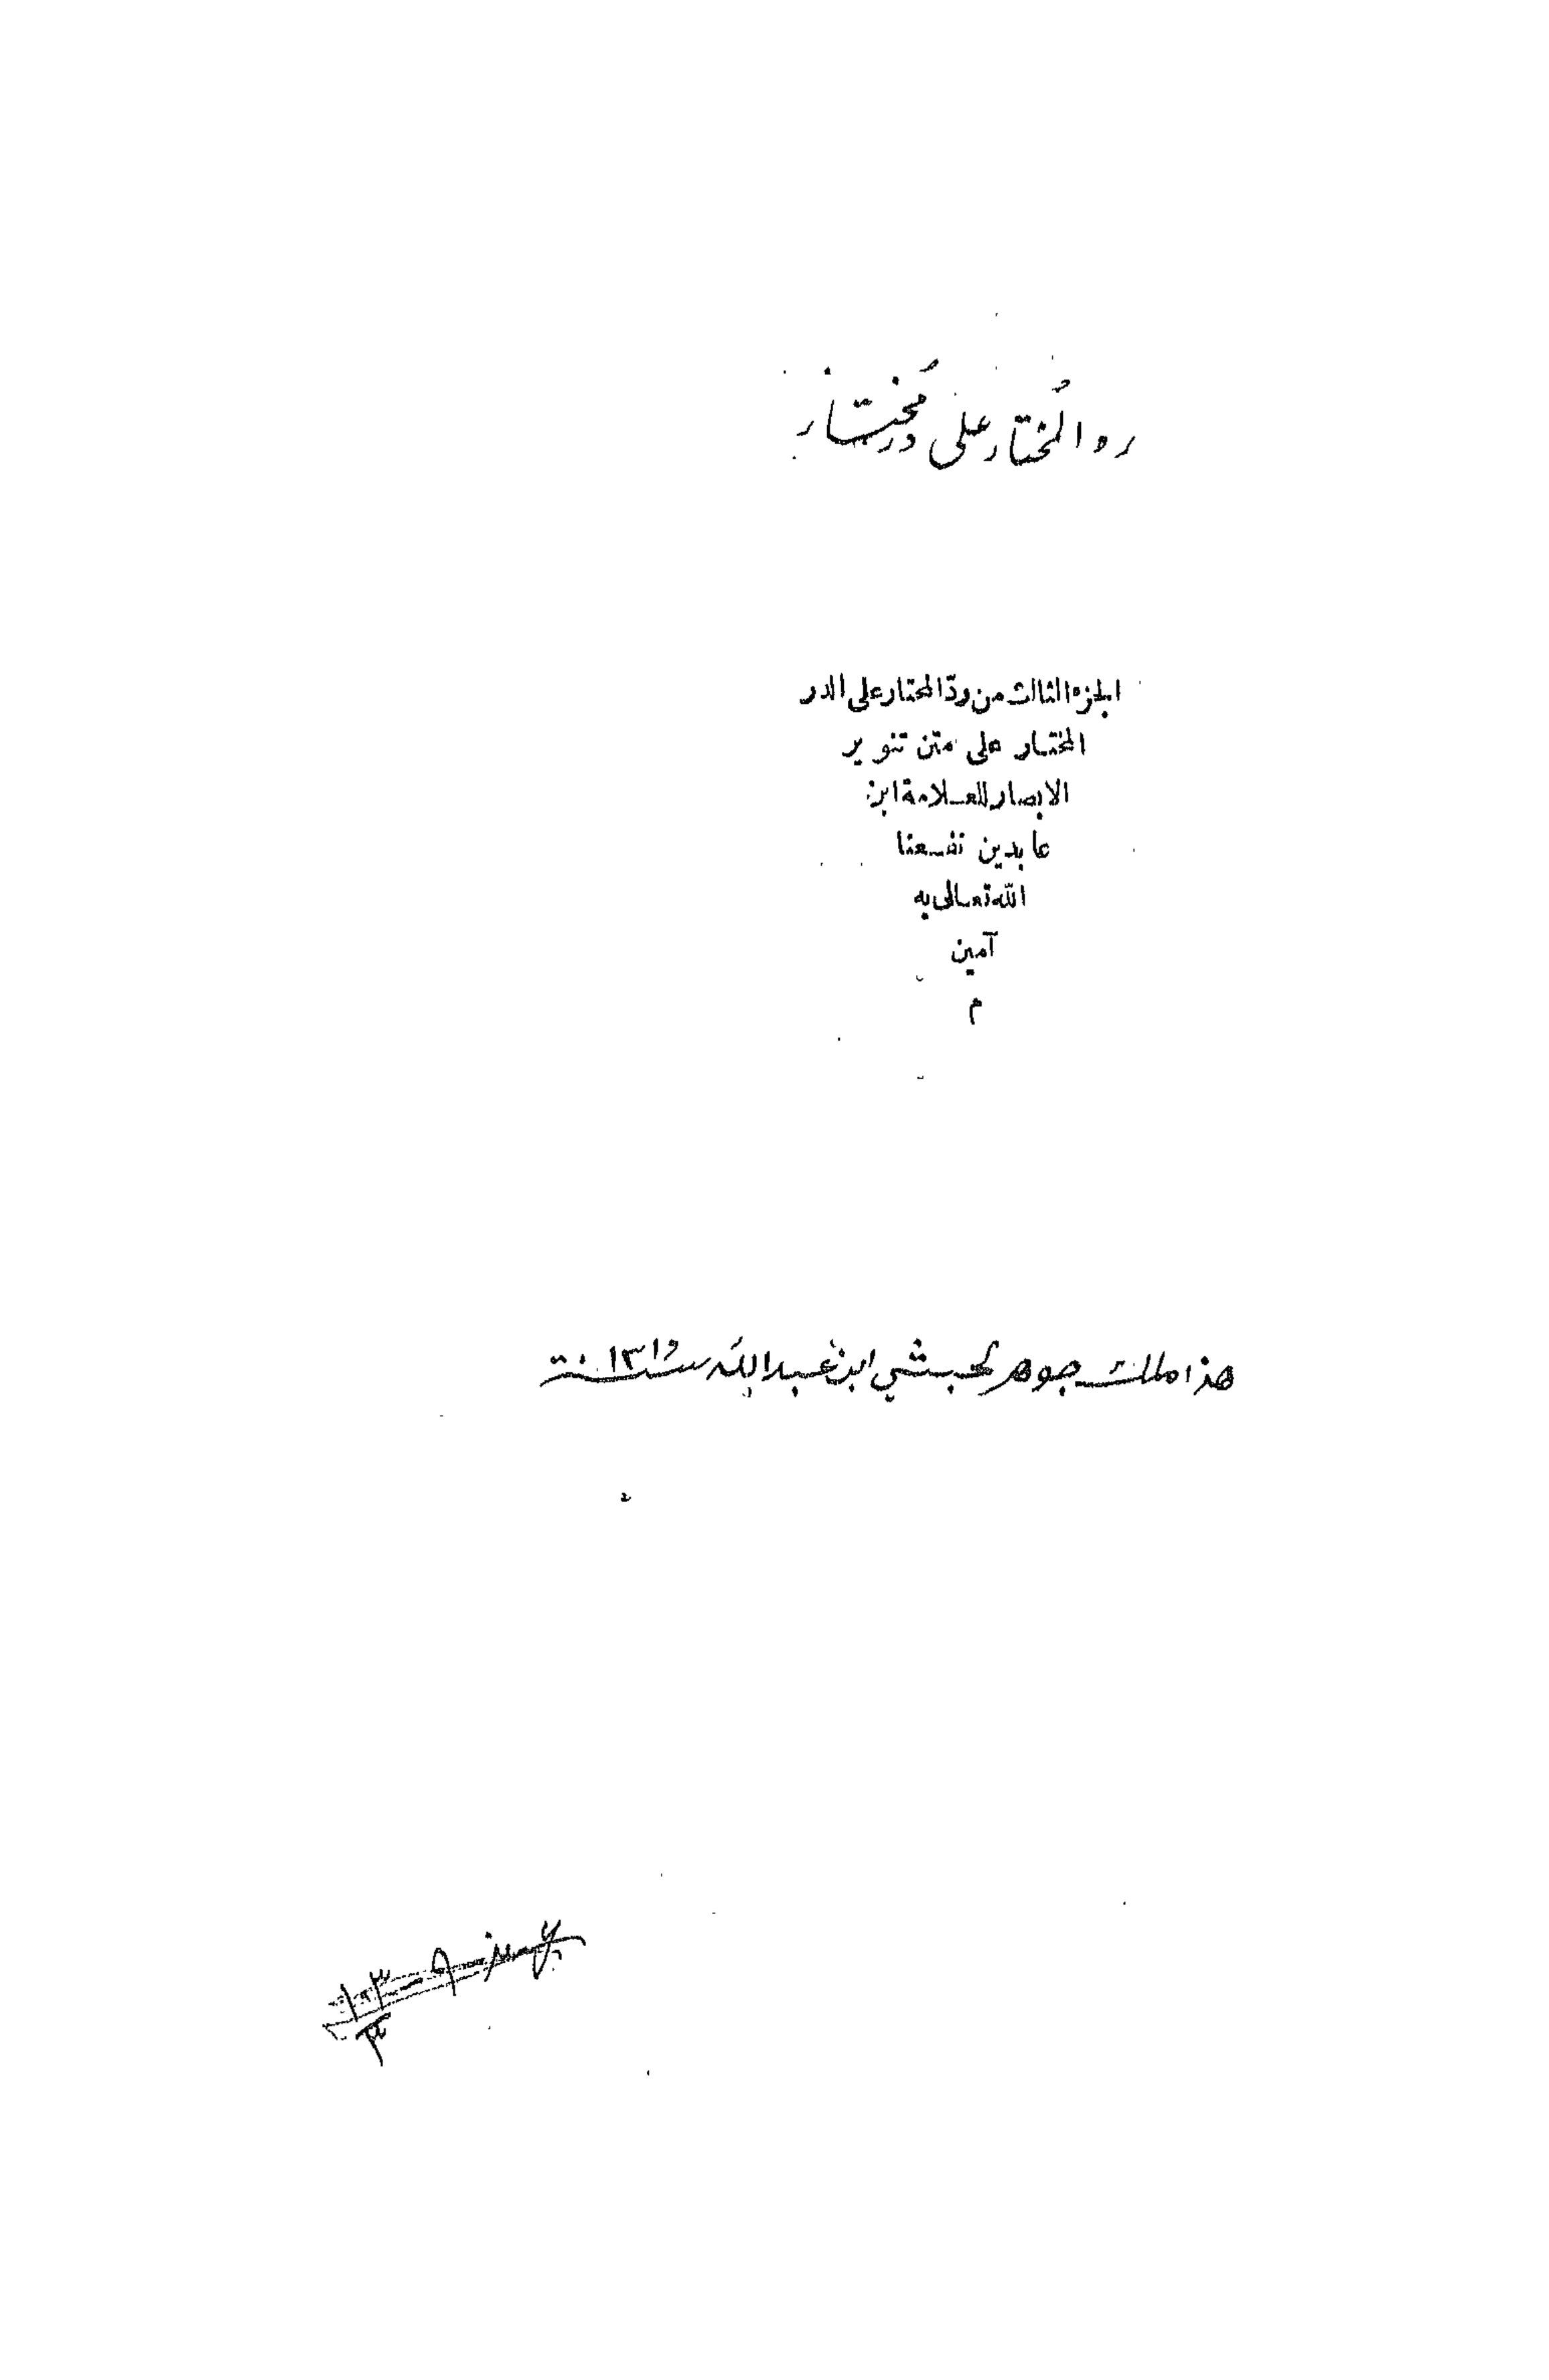 رد المختار على در مختار
الجزء الثالث من ردّ المحتار على الدر
المختار على متن تنوير
الابصار للعلامة ابن
عابدين نفعنا
الله تعالى به
آمين
م
هذا ملك جوهر لحبشي ابن عبد الله سنة